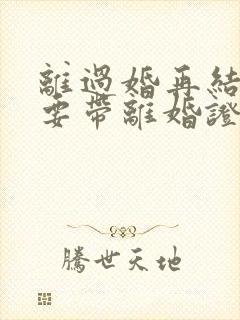 離過婚再結
要帶離婚證
騰世天地